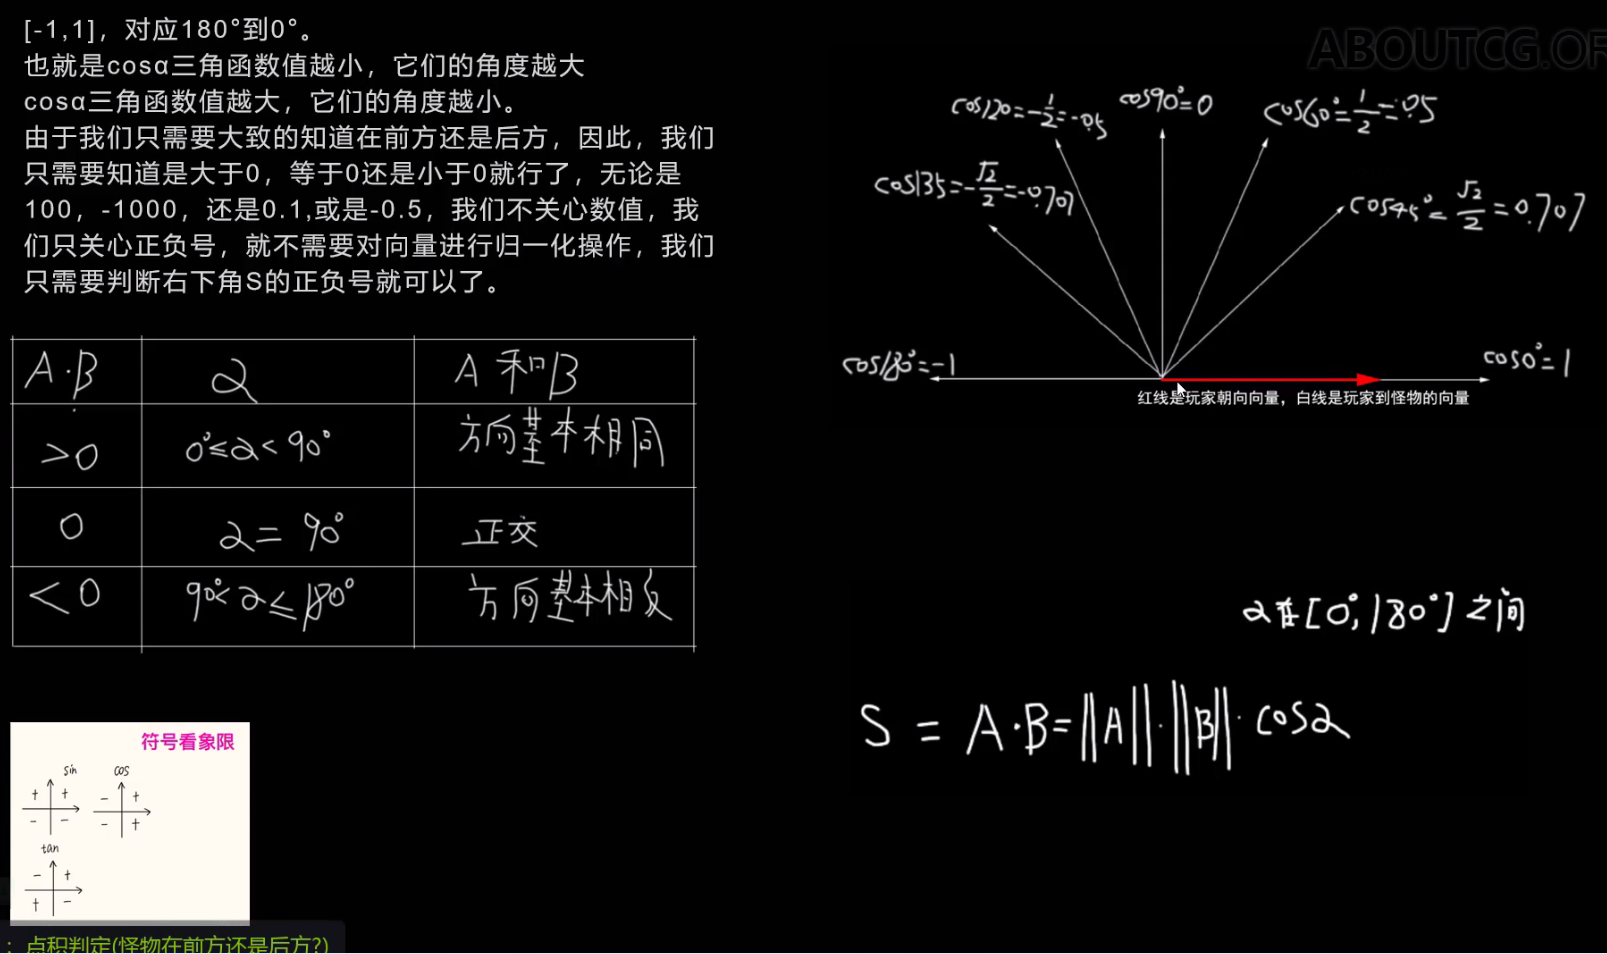 [-1,1]，对应180°到0°。
也就是cosα三角函数值越小，它们的角度越大
cosα三角函数值越大，它们的角度越小。
由于我们只需要大致的知道在前方还是后方，因此，我们
只需要知道是大于0，等于0还是小于0就行了，无论是
100，-1000，还是0.1,或是-0.5，我们不关心数值，我
们只关心正负号，就不需要对向量进行归一化操作，我们
只需要判断右下角S的正负号就可以了。
A·B α A和B
>0 0°≤α<90° 方向基本相同
0 α=90° 正交
<0 90°<α≤180° 方向基本相反
符号看象限
sin cos
+ + - +
- - - +
tan
- +
+ -
: 点积判定(怪物在前方还是后方?)
ABOUTCG.OR
cos120=-1/2=-0.5
cos90°=0
cos60°=1/2=0.5
cos135=-√2/2=-0.707
cos45°=√2/2=0.707
cos180°=-1
cos0°=1
红线是玩家朝向向量，白线是玩家到怪物的向量
α在[0°,180°]之间
S=A·B=||A||·||B||·cosα